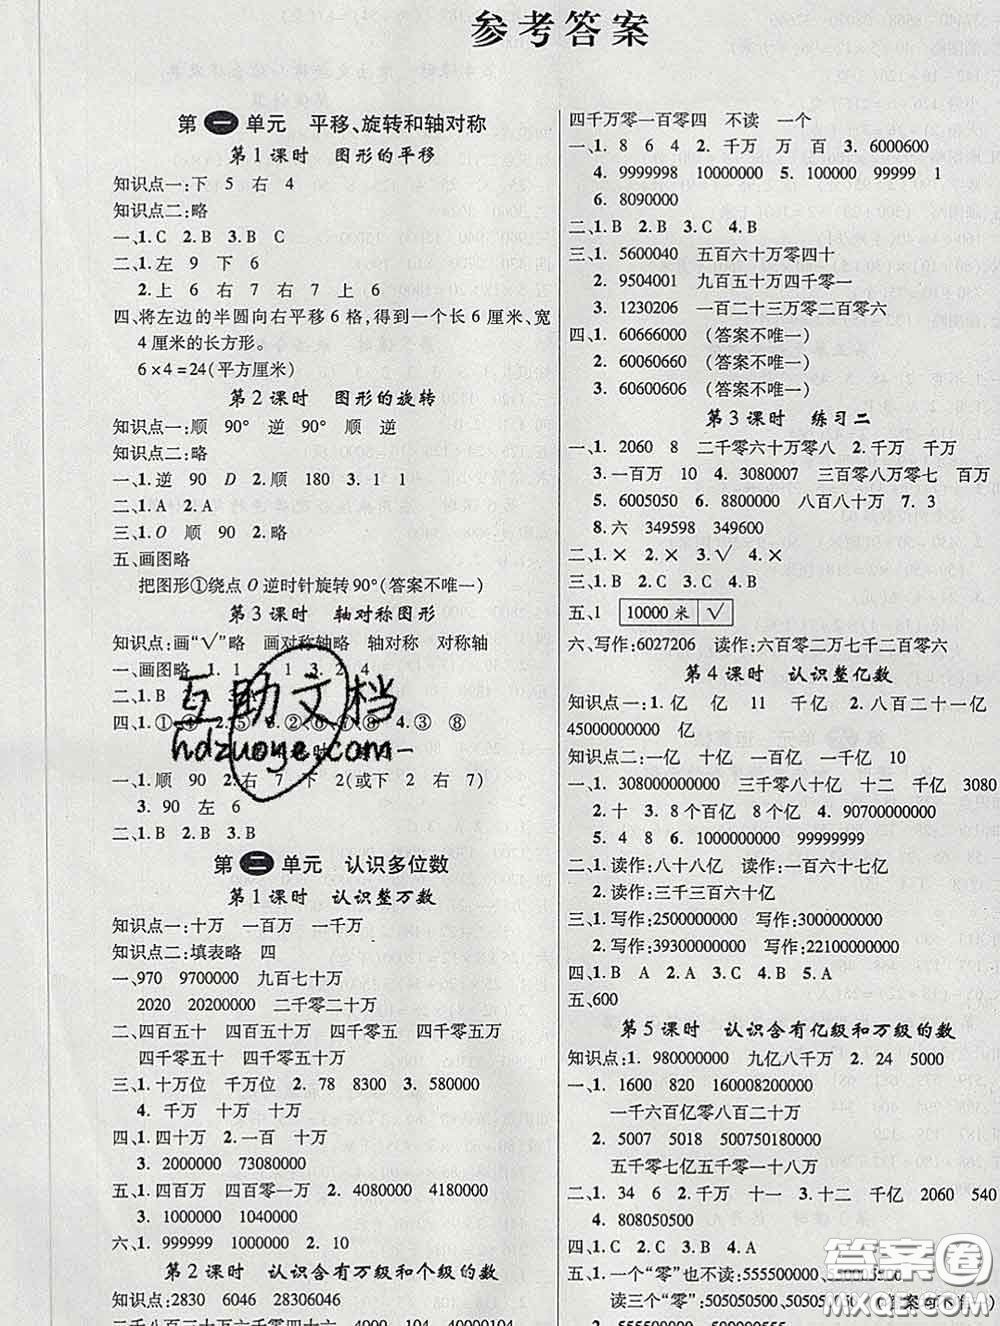 参考答案
第一单元 平移、旋转和轴对称
第1课时 图形的平移
知识点一:下 5 右 4
知识点二:略
一、1. C 2. B 3. B C
二、1. 左 9 下 6
2. 上 6 右 7 右 7 上 6
四、将左边的半圆向右平移6格,得到一个长6厘米、宽
4厘米的长方形。
6×4=24(平方厘米)
第2课时 图形的旋转
知识点一:顺 90° 逆 90° 顺 逆
知识点二:略
一、1. 逆 90 D 2. 顺 180 3. 1 1
二、1. A 2. A
三、1. O 顺 90 2. 略
五、画图略
把图形①绕点O逆时针旋转90°(答案不唯一)
第3课时 轴对称图形
知识点:画“√”略 画对称轴略 轴对称 对称轴
一、画图略 1 1 2 1 3 2 4
二、1. B
四、1. ① ④ 2. ⑤ 3. ② ⑥ ⑦ 4. ③ ⑧
一、1. 顺 90 2. 右 7 下 2(或下 2 右 7)
3. 90 左 6
二、1. B 2. B 3. B
第二单元 认识多位数
第1课时 认识整万数
知识点一:十万 一百万 一千万
知识点二:填表略 四
一、970 9700000 九百七十万
2020 20200000 二千零二十万
二、四百五十 四百五十万 四千零五 四千零五万
四千零五十 四千零五十万
三、1. 十万位 千万位 2. 78 8300 3. 580000
4. 千万 十万 十万
四、1. 四十万 2. 一百 十万
3. 2000000 73080000
五、1. 四百万 四百零一万 2. 4080000 4180000
3. 1000000 1040000
六、1. 999999 1000000 2. 10
第2课时 认识含有万级和个级的数
知识点:2830 6046 28306046
二千八百三十万六千零四十六 4000 0104 40000104
四千万零一百零四 不读 一个
一、1. 8 6 4 2. 千万 万 百 3. 6000600
4. 9999998 10000000 5. 100000 99999 1
6. 8090000
二、1. B 2. B 3. C 4. B
三、1. 5600040 五百六十万零四十
2. 9504001 九百五十万四千零一
3. 1230206 一百二十三万零二百零六
四、1. 60666000 (答案不唯一)
2. 60060660 (答案不唯一)
3. 60600606 (答案不唯一)
第3课时 练习二
一、1. 2060 8 二千零六十万零八 2. 千万 千万
3. 一百万 10 4. 3080007 三百零八万零七 百万
5. 6005050 6. 8800000 八百八十万 7. 3
8. 六 349598 349600
二、1. × 2. × 3. √ 4. ×
三、1. B 2. B 3. C
五、1 10000米 √
六、写作:6027206 读作:六百零二万七千二百零六
第4课时 认识整亿数
知识点一:1. 亿 亿 11 千亿 2. 八百二十一亿
45000000000 亿
知识点二:一亿 十亿 一百亿 一千亿 10
一、1. 308000000000 三千零八十亿 十二 千亿 3 8
2. 十 3. 8个百亿 8个亿 4. 90700000000
5. 4 8 6. 1000000000 99999999
二、1. 读作:八十八亿 读作:一百六十七亿
2. 读作:三千三百六十亿
三、1. 写作:2500000000 写作:3000000000
2. 写作:39300000000 写作:22100000000
四、1. B A 2. A 3. C
五、600
第5课时 认识含有亿级和万级的数
知识点:1. 980000000 九亿八千万 2. 24 5000
一、1. 1600 820 160008200000
一千六百亿零八百二十万
2. 5007 5018 500750180000
五千零七亿五千零一十八万
二、1. 34 6 2. 千万 十一 3. 十二 千亿 2060 540
4. 808050500
四、1. C 2. C 3. B 4. A
五、1. 一个“零”也不读:555500000、555005500
读三个“零”:505050500、505005500(答案不唯一)
互助文档
hdzuoye.com
答案卷